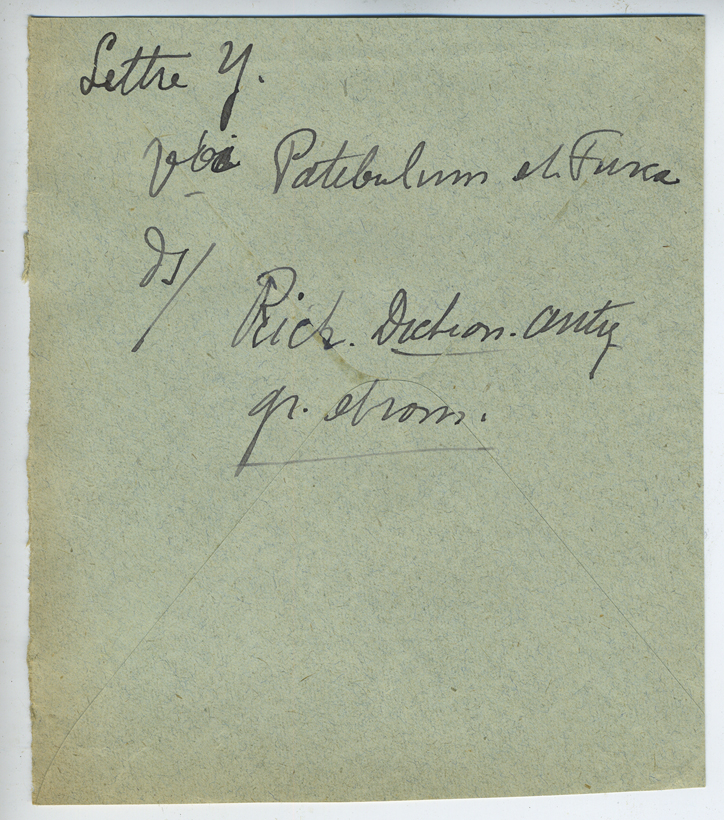 Lettre Y.
voi Patibulum et Furca
ds/
Rich. Diction. antiq
gr. et rom.